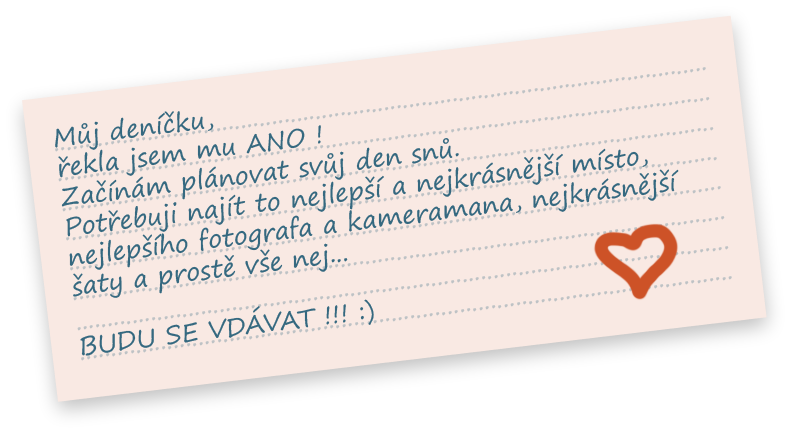 Můj deníčku,
řekla jsem mu ANO !
Začínám plánovat svůj den snů.
Potřebuji najít to nejlepší a nejkrásnější místo,
nejlepšího fotografa a kameramana, nejkrásnější
šaty a prostě vše nej...
BUDU SE VDÁVAT !!! :)